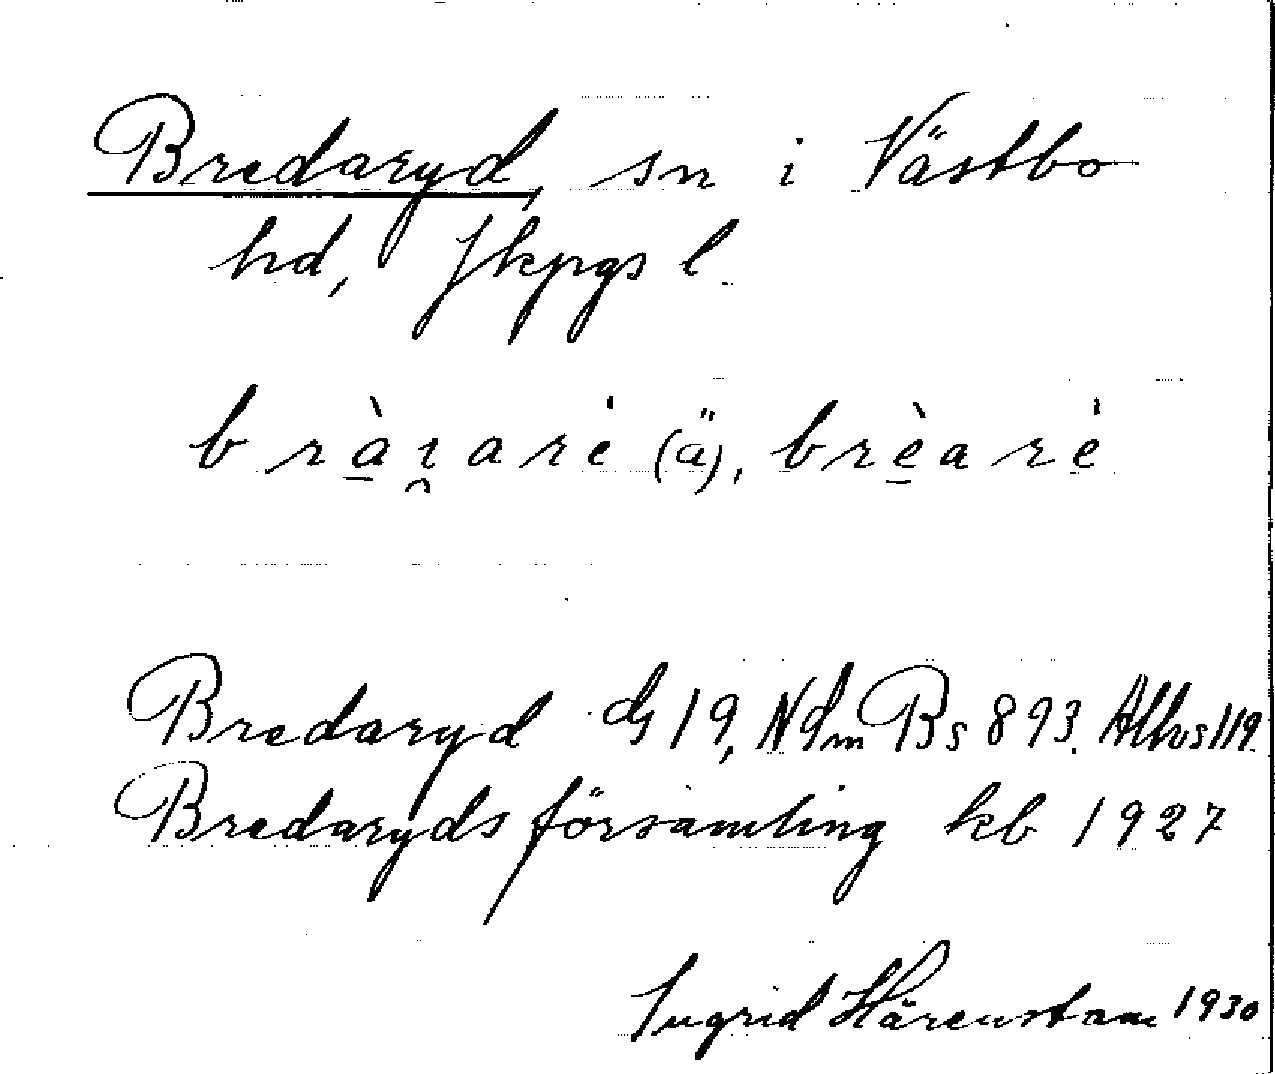 Bredaryd, sn i Västbo
hd, Jkpgs l.
brà̠i̯arė (ä), brè̠arė
Bredaryd G 19, NSm Bs 893. Allvs 119.
Bredaryds församling kb 1927
Ingrid Härenstam 1930